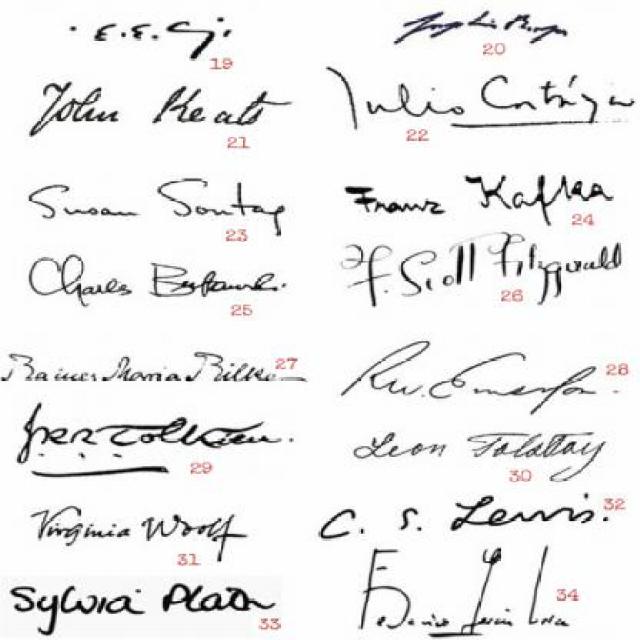 E.E.C.
19
20
John Keats
21
Julio Cortázar
22
Susan Sontag
23
Franz Kafka
24
Charles Bukowski.
25
F. Scott Fitzgerald
26
Rainer Maria Rilke
27
R.W. Emerson.
28
JRR Tolkien.
29
Leon Tolstoy
30
Virginia Woolf
31
C. S. Lewis.
32
Sylvia Plath
33
Federico García Lorca
34